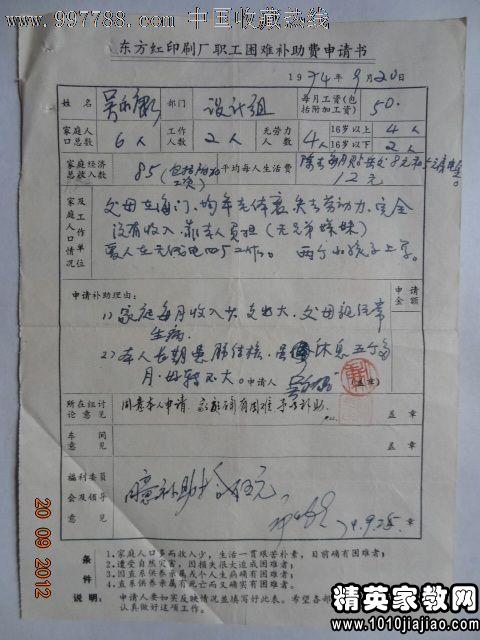 www.997788.com 中国收藏热线
东方红印刷厂职工困难补助费申请书
1974年9月20日
姓名 吴 部门 设计组 每月工资(包括附加工资) 50.
家庭人口总数 6人 工作人数 2人 无劳力人数 4人 16岁以上 4人 16岁以下 2人
家庭经济总收入数 85(包括附加工资) 平均每人生活费 12元
家庭人口情况及工作单位
父母在海门、均年老体衰失去劳动力、完全
没有收入、靠本人负担(无兄弟妹妹)
爱人在无线电四厂工作。 两个小孩子上学。
申请补助理由: 申请金额
1)家庭每月收入少支出大、父母现经常
生病.
2)本人长期患肺结核、休息五个多
月.好转不大。申请人 (盖章)
所在组讨论意见 同意本人申请.家庭确有困难 予以补助. 盖章
车间意见 盖章
福利委员会及领导意见 同意补助 伍元, 74.9.25 盖章
条件
1.家庭人口多而收入少,生活一贯艰苦朴素,目前确有困难者;
2.遭受自然灾害,因损失很大造成困难者;
3.因直系供养亲属或个人生病确有困难者;
4.直系供养亲属有死亡而又确实有困难者。
说明: 申请人要如实反映情况并填写好此表。希望各部
认真做好这项工作。
20 09 2012
精英家教网
www.1010jiajiao.com